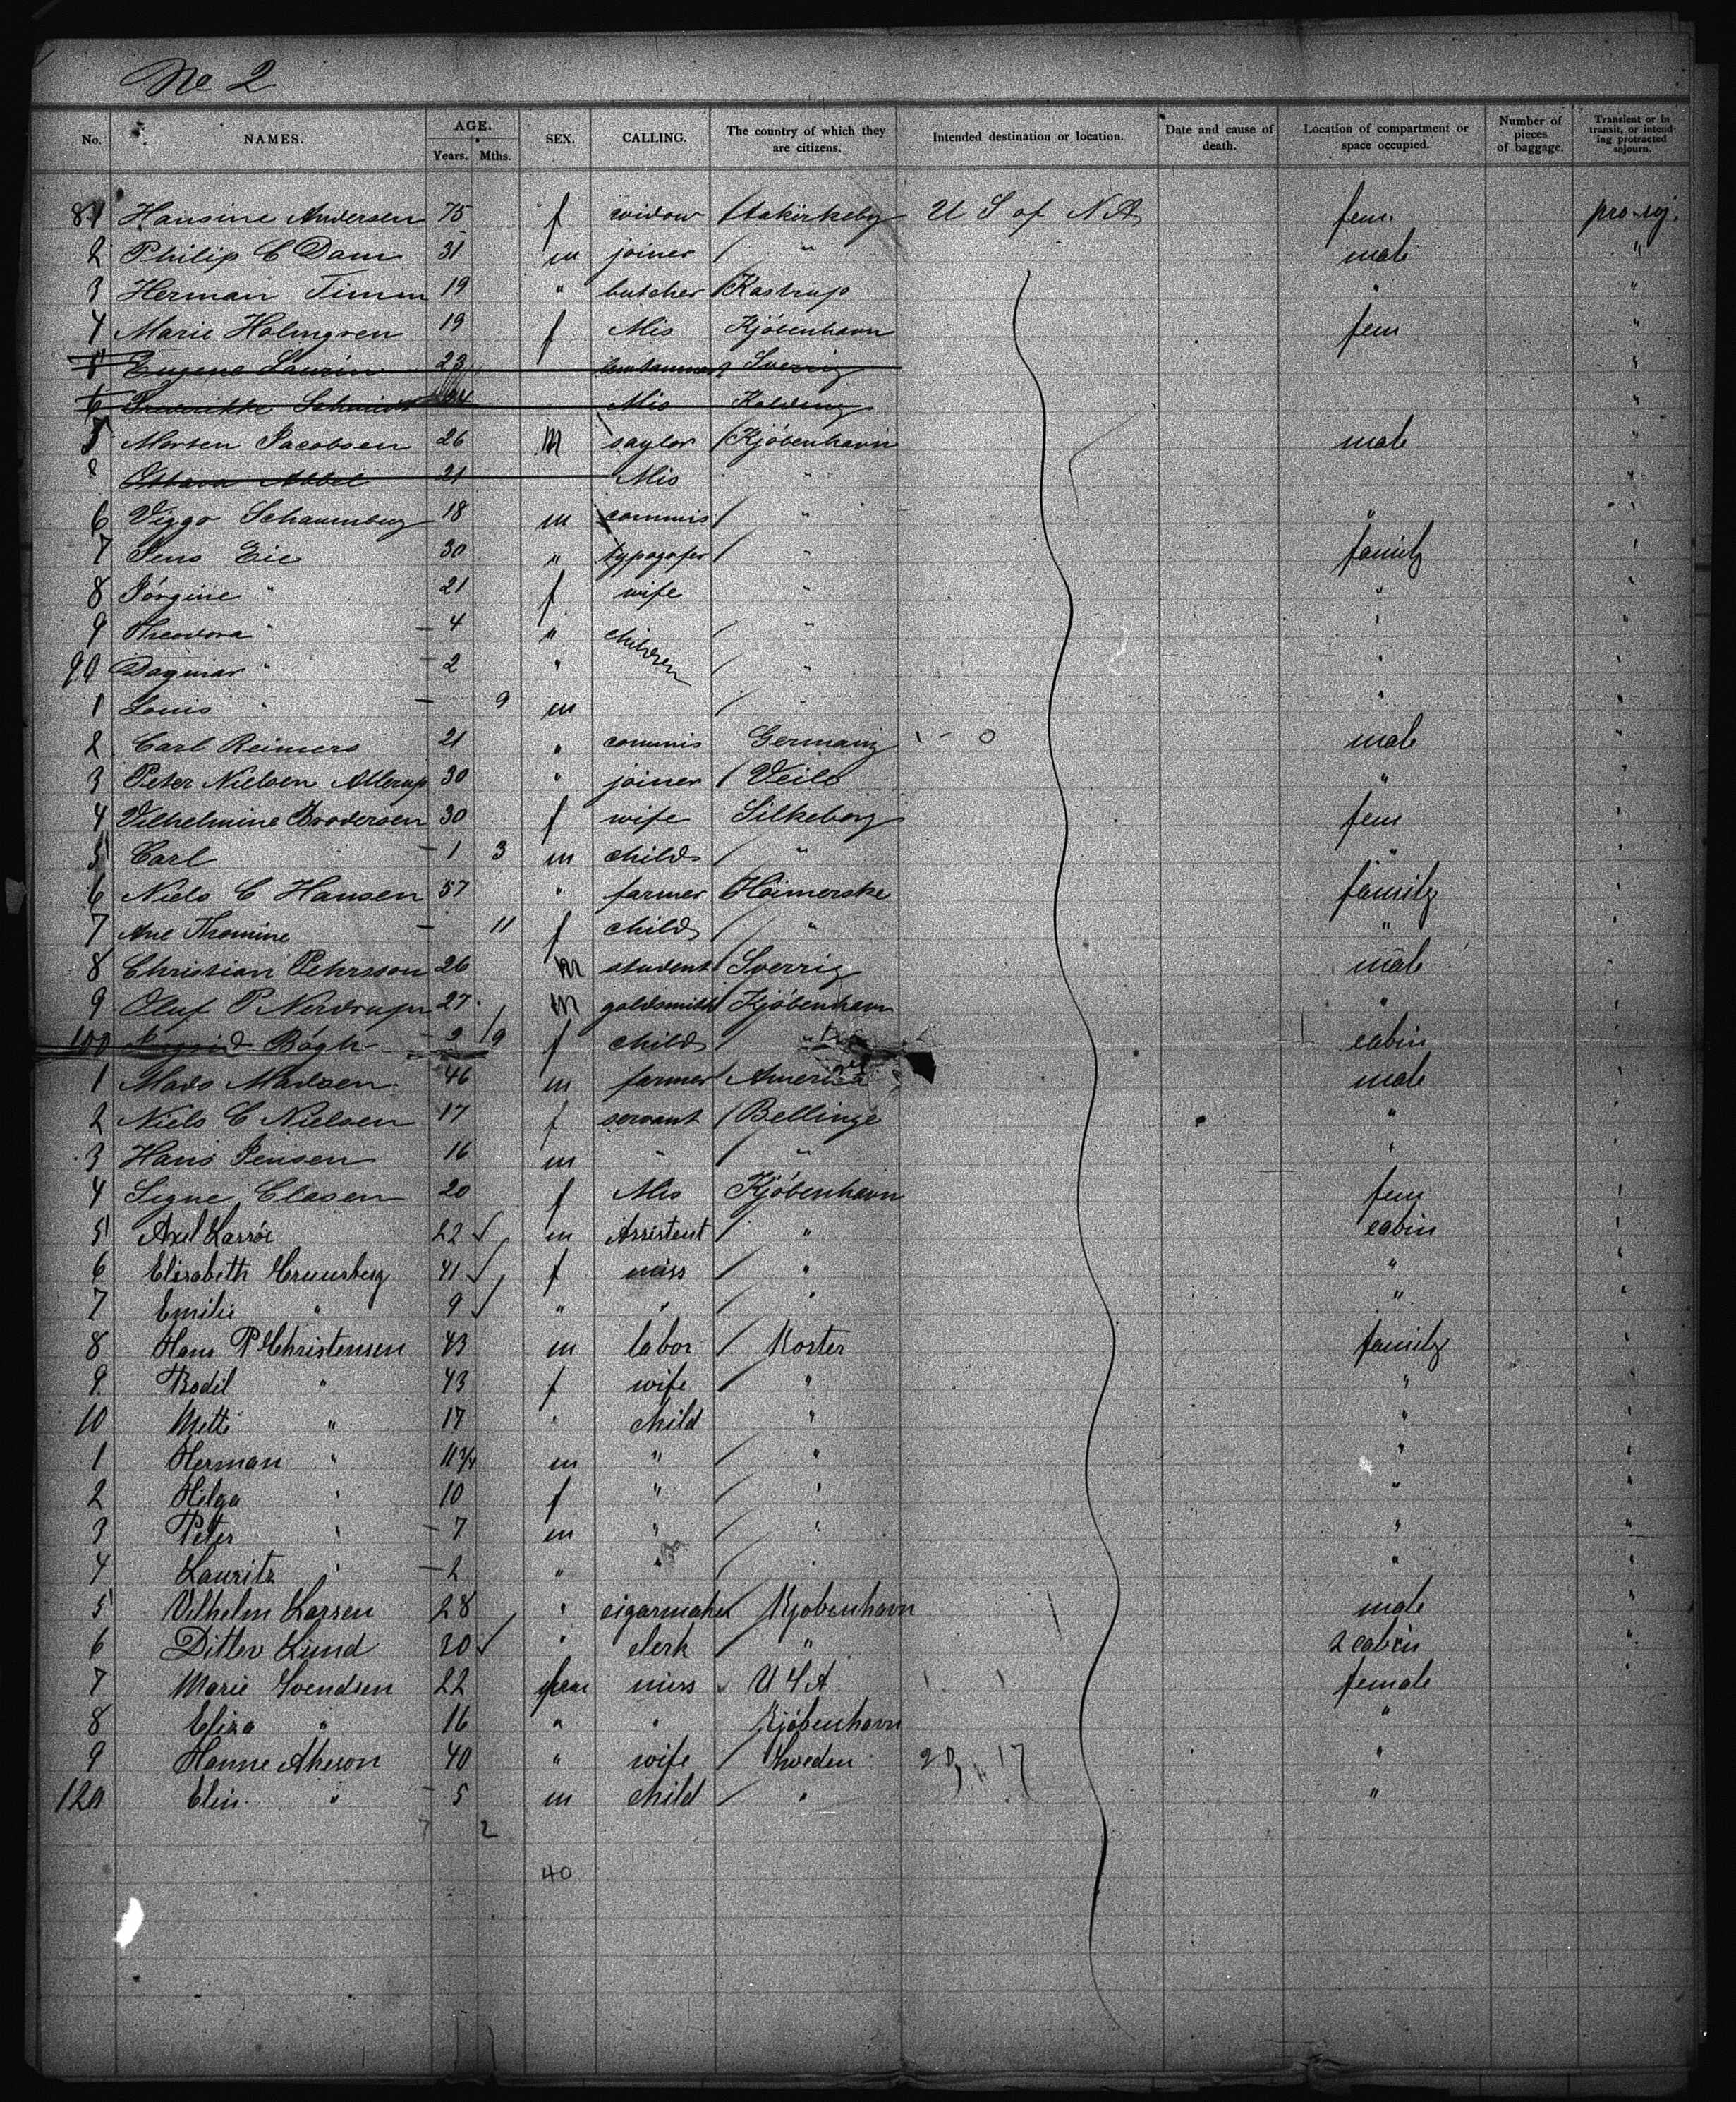 No 2
No. NAMES. AGE. Years. Mths. SEX. CALLING. The country of which they are citizens. Intended destination or location. Date and cause of death. Location of compartment or space occupied. Number of pieces of baggage. Transient or in transit, or intending protracted sojourn.
81 Hansine Andersen 75 f widow Aakirkeby U S of NA fem. pro. soj.
2 Philip C Dam 31 m joiner / " male "
3 Herman Timm 19 " butcher / Kastrup " "
4 Marie Holmgren 19 f Mis Kjöbenhavn fem "
Eugene Laurin 23 Sverrig "
6 Frederikke Schmidt 24 Mis Kolding "
5 Morten Jacobsen 26 m saylor / Kjöbenhavn male "
8 Abbel 21 Mis " "
6 Viggo Schaumburg 18 m commis / " " "
7 Jens Eie 30 " typografer / " family "
8 Jörgine " 21 f wife " " "
9 Theodora " 4 " children / " " "
90 Dagmar " 2 " / " " "
1 Louis " 9 m / " " "
2 Carl Reimers 21 " commis Germany male "
3 Peter Nielsen Allerup 30 " joiner / Veile " "
4 Vilhelmine Brodersen 30 f wife Silkeborg fem "
5 Carl 1 3 m child / " " "
6 Niels C Hansen 57 " farmer / Höimerske family "
7 Ane Thomine 11 f child / " " "
8 Christian Pehrsson 26 m student / Sverrig male "
9 Oluf P Nerdrupn 27 m goldsmith / Kjöbenhavn " "
100 Bögh 2 9 f child / " cabin "
1 Mads Madsen 46 m farmer America male "
2 Niels C Nielsen 17 f servant / Bellinge " "
3 Hans Jensen 16 m " / " " "
4 Signe Clasen 20 f Mis Kjöbenhavn fem "
5 Axel 22 m Assistent / " cabin "
6 Elisabeth 41 f miss / " " "
7 Emilie " 9 " " / " " "
8 Hans P Christensen 43 m labor / Koster family "
9 Bodil " 43 f wife / " " "
10 Mette " 17 " child " " "
1 Herman " 11 3/4 m " / " " "
2 Helga " 10 f " / " " "
3 Peter " 7 m " / " " "
4 Lauritz " 2 " " / " " "
5 Vilhelm Larsen 28 " cigarmaker / Kjobenhavn male "
6 Ditlev Lund 20 " clerk / " 2 cabin "
7 Marie Svendsen 22 fem miss U S A female "
8 Eliza " 16 " " Kjöbenhavn "
9 Hanne Akeson 40 " wife / Sweden "
120 Elin " 5 m child / " "
2
40